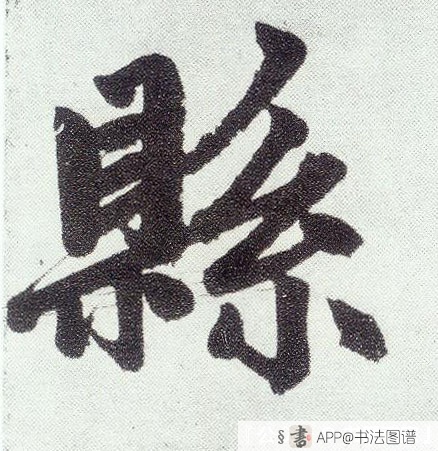 縣
§ 書 APP@书法图谱